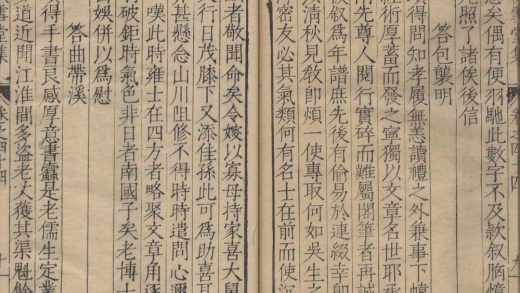 書堂集 卷之四十四
恙矣偶有便羽馳此數字不及款叙胸憶
照了諸俟後信
答包蕚明
得問知孝履無恙讀禮之外兼事下幃
經術厚蓄而發之寧獨以文章名世耶承
南先尊人閱行實碎而難屬閣筆者再誠
叙為年譜庶先後有倫易於連綴幸即
清秋見敎即煩一使專取何如吳生之
密友必其氣類何有名士在前而使沉
者敬聞命矣令嫂以寡母持家喜大
行日茂膝下又添佳孫此可為助喜耳
甚懸念山川阻修不得時時遣問心邇
嘆此時雍士在四方者略聚文章角逐
破鉅時氣色非日者南國子矣老博士
娛併以為慰
答曲帶溪
得手書良感厚意書齋是老儒生定業
道近聞江淮間多盜老丈獲其渠魁餘
書堂集 卷之四十四